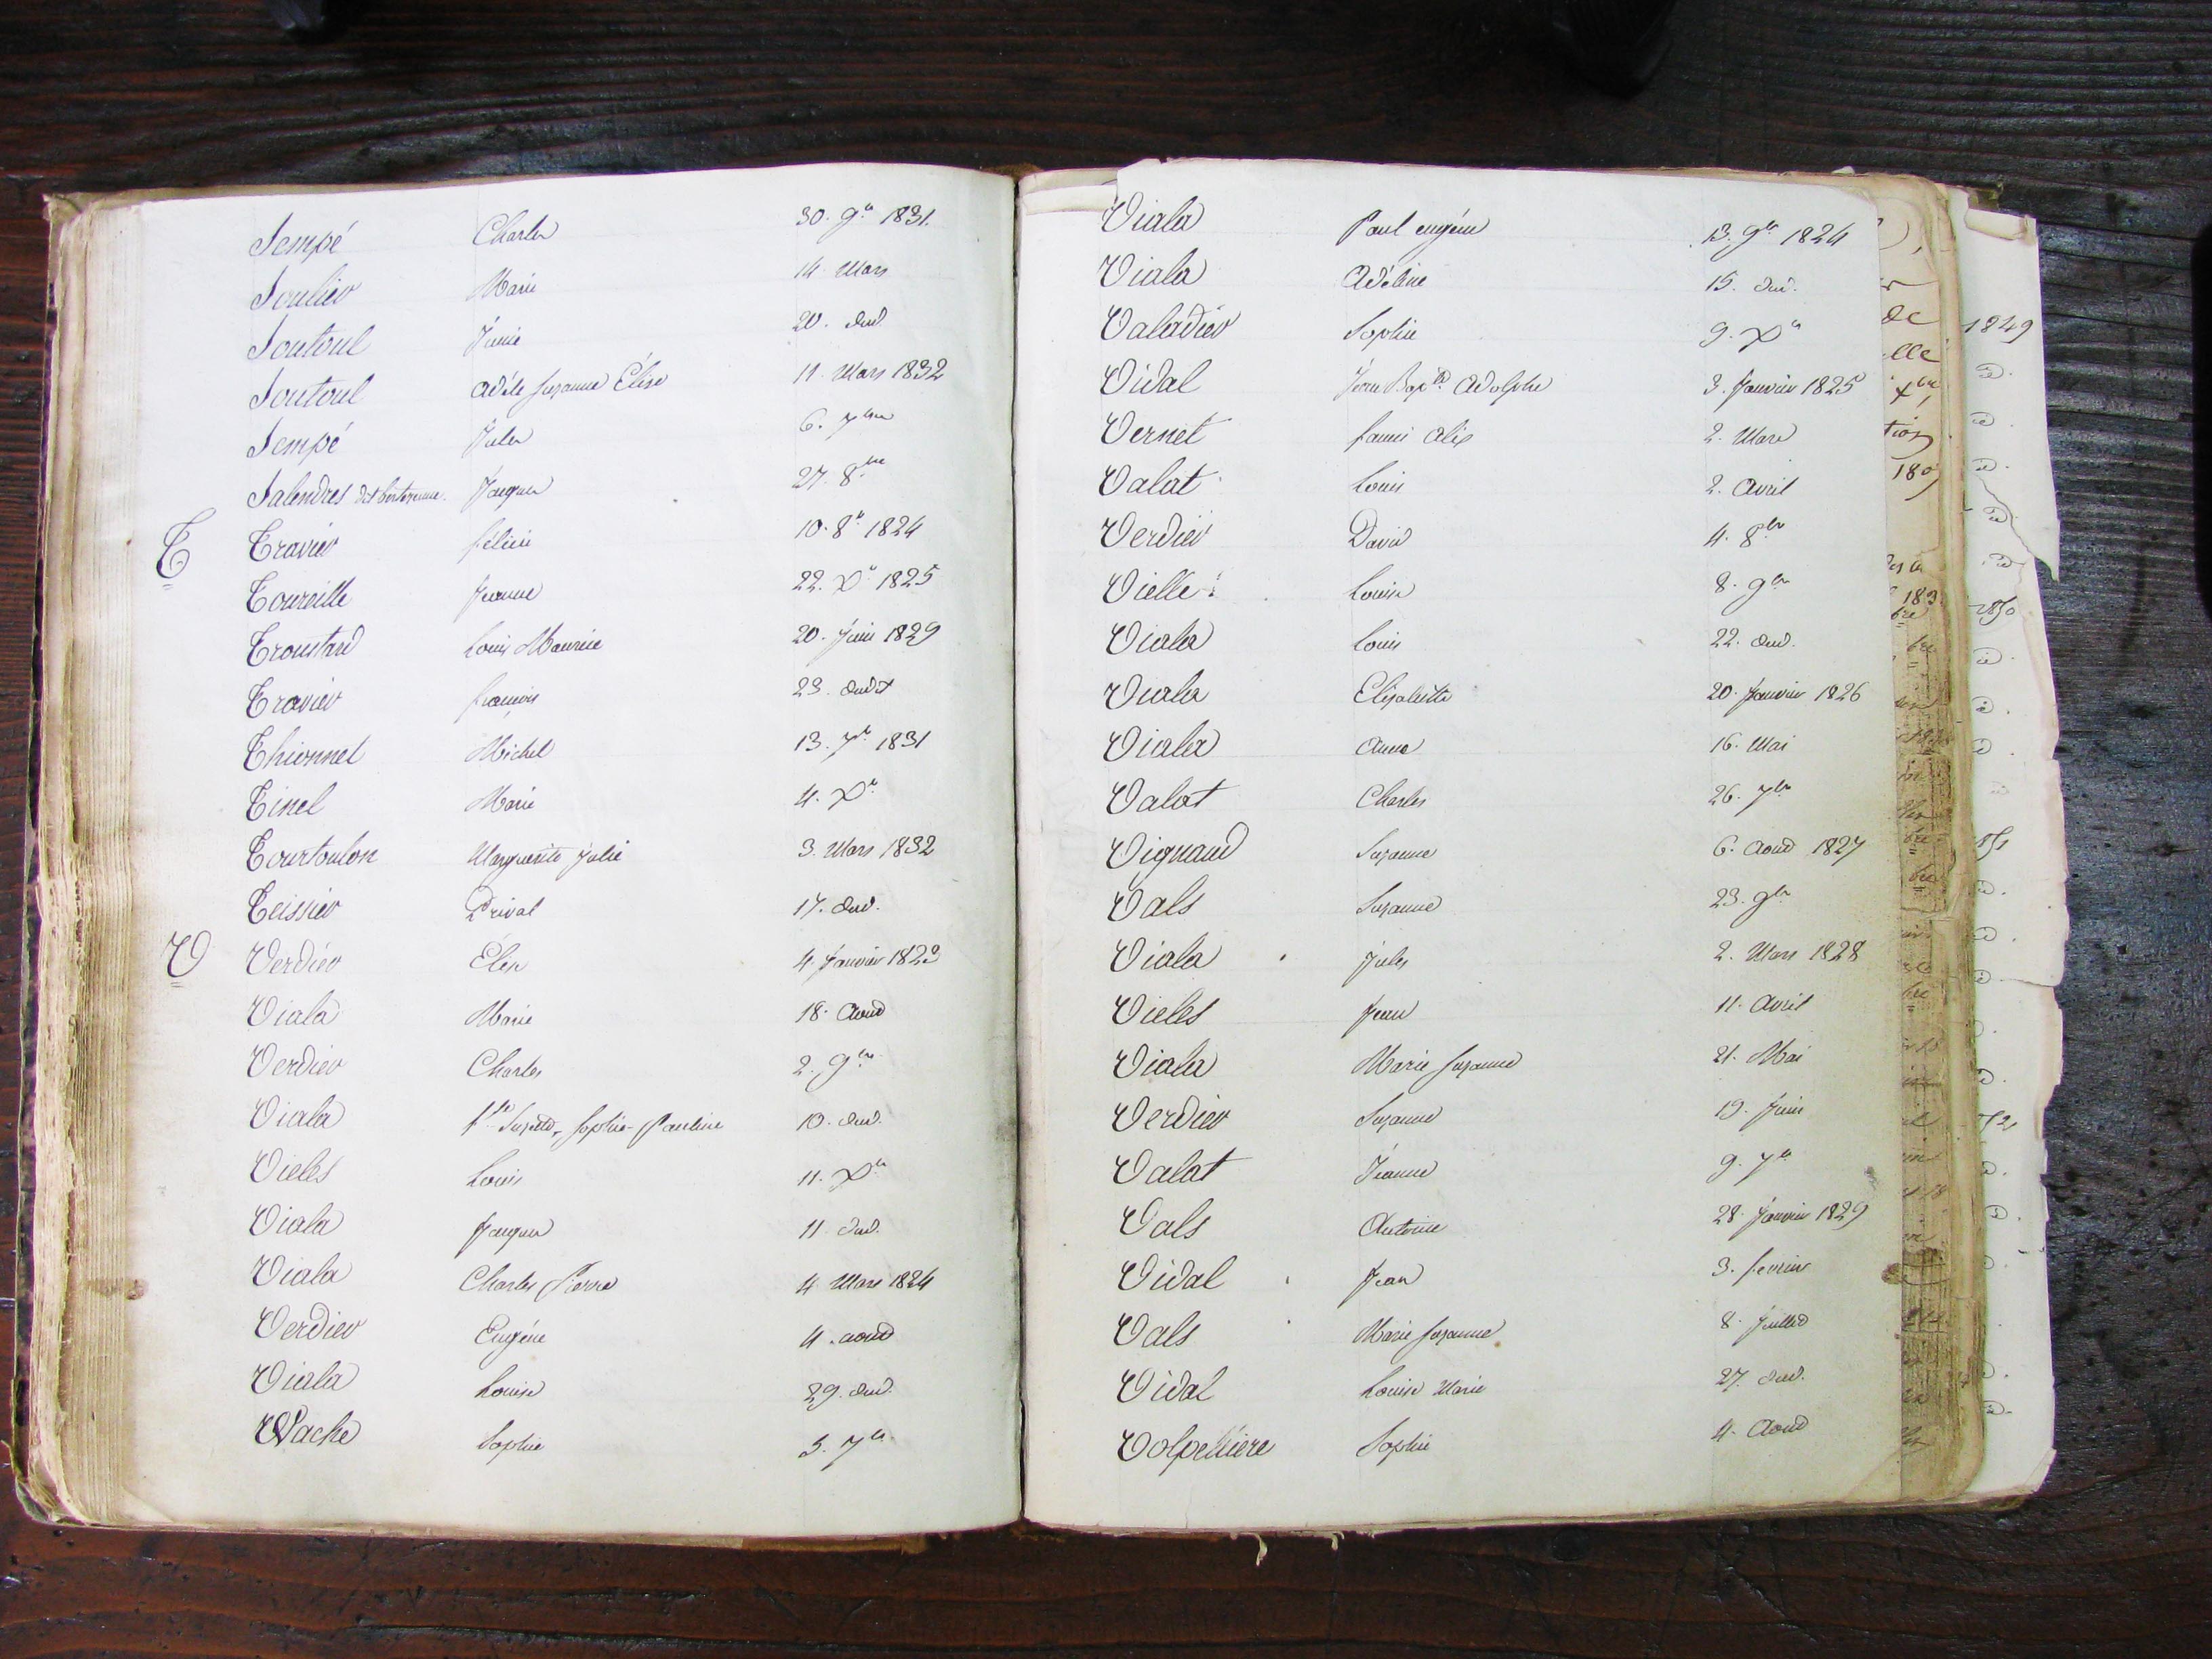 Sempé Charles 30. 9re 1831.
Soulier Marie 14. Mars
Soutoul Junie 20. dud.
Soutoul Adèle Suzanne Élise 11. Mars 1832
Sempé Jules 6. 7bre
Salendres dit Jaques 27. 8bre
T Travier félicie 10. 8re 1824
Toureille Jeanne 22. Xre 1825
Troustard Louis Maurice 20. Juin 1829
Travier françois 23. dudt
Thionnet Michel 13. 7re 1831
Tinel Marie 4. Xre
Tourtoulon Marguerite Julie 3. Mars 1832
Teissier Prival 17. dud.
V Verdier 4. Janvier 1823
Viala Marie 18. Aoud
Verdier Charles 2. 9bre
Viala Sophie Pauline 10. dud.
Vieles Louis 11. Xre
Viala Jaques 11. dud.
Viala Charles Pierre 4. Mars 1824
Verdier Eugéne 4. aoud
Viala Louise 29. dud.
Vache Sophie 5. 7re
Viala Paul eugéne 13. 9bre 1824
Viala Adéline 15. dud.
Valadier Sophie 9. Xre
Vidal Jean Bapte Adolphe 3. Janvier 1825
Vernet fanni Alix 2. Mars
Valat Louis 2. Avril
Verdier David 4. 8bre
Vielle Louise 8. 9bre
Viala Louis 22. dud.
Viala Elisabette 20. Janvier 1826
Viala Anne 16. Mai
Valat Charles 26. 7bre
Vignaud Suzanne 6. Aoud 1827
Vals Suzanne 23. 9bre
Viala Jules 2. Mars 1828
Vieles Jean 11. Avril
Viala Marie Suzanne 21. Mai
Verdier Suzanne 19. Juin
Valat Jeanne 9. 7re
Vals Antoine 28. Janvier 1829
Vidal Jean 3. fevrier
Vals Marie Suzanne 8. Juilled
Vidal Louise Marie 27. dud.
Volpelliere Sophie 4. Aoud
de
elle
tion
180
183
1849
1850